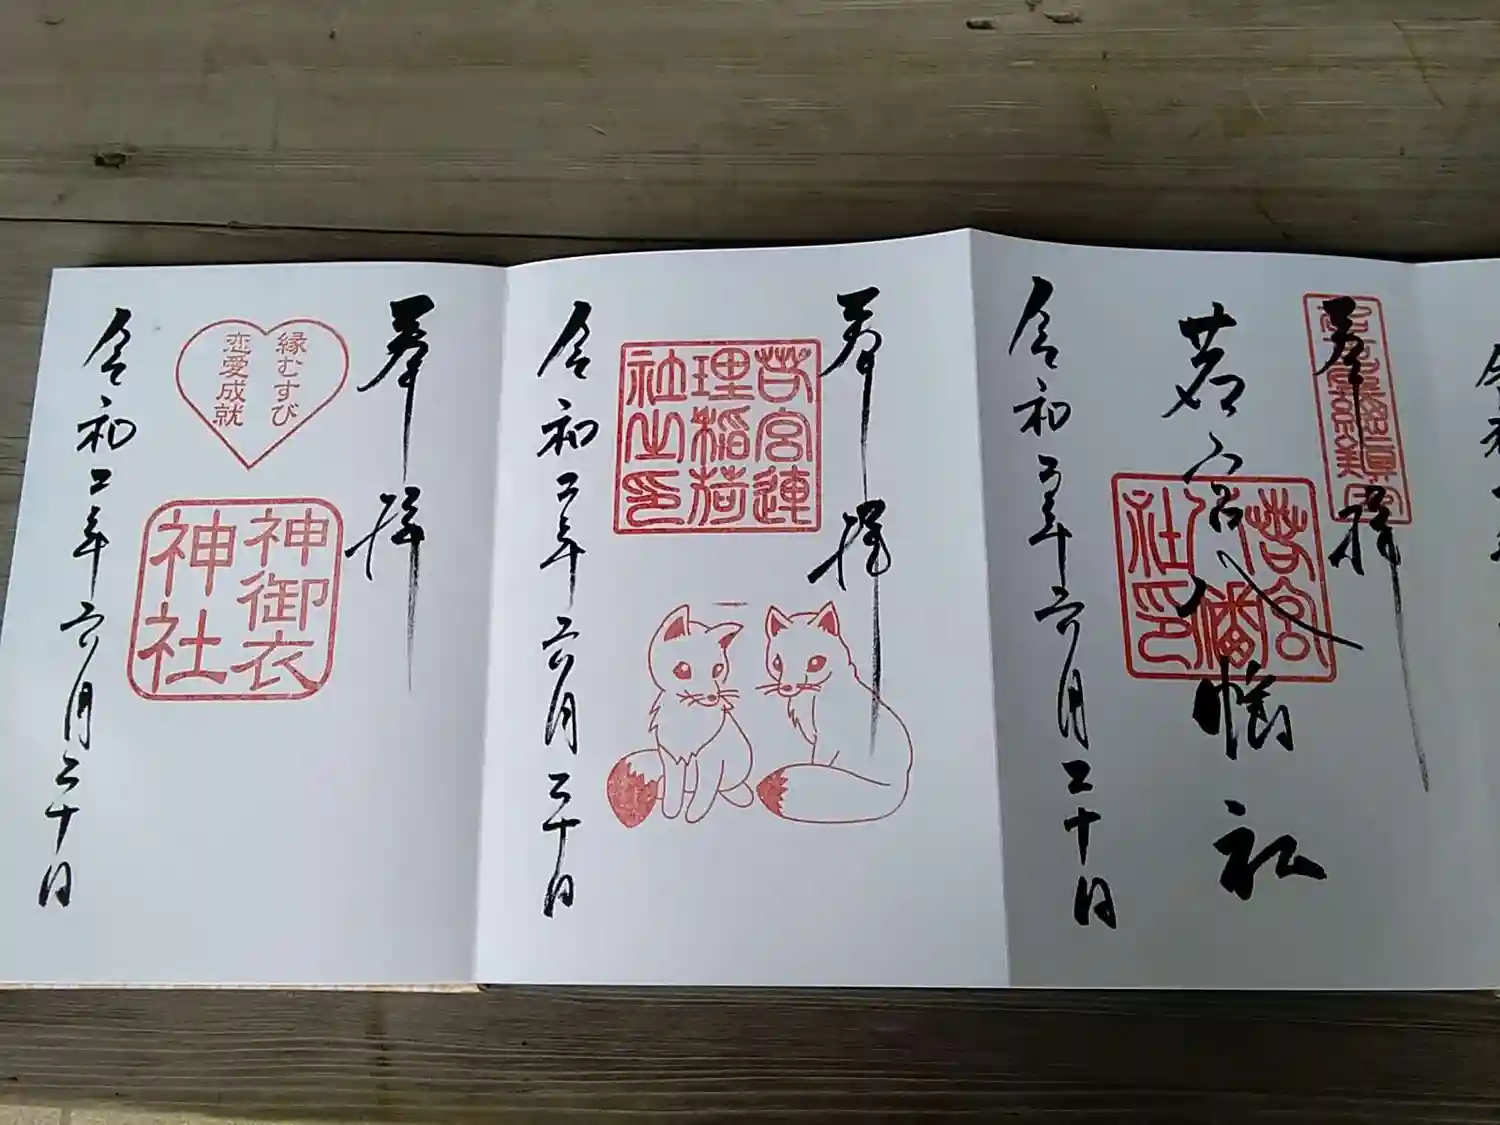 奉拝
若宮八幡社
若宮八幡社印
令和二年六月二十日
奉拝
若宮連理稲荷社之印
令和二年六月二十日
奉拝
縁むすび
恋愛成就
神御衣神社
令和二年六月二十日